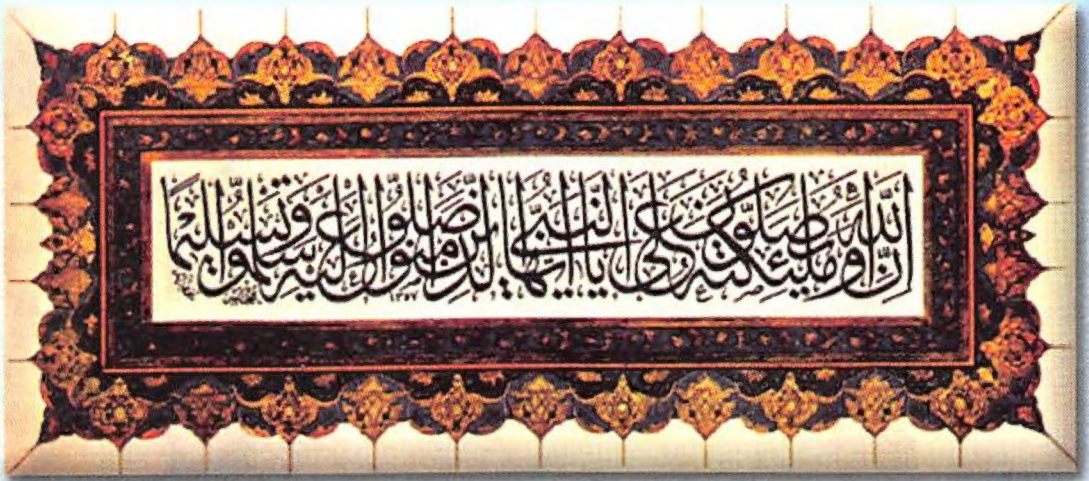 إن الله وملئكته يصلون على النبي يا أيها الذين آمنوا صلوا عليه وسلموا تسليما
١٣٥٧